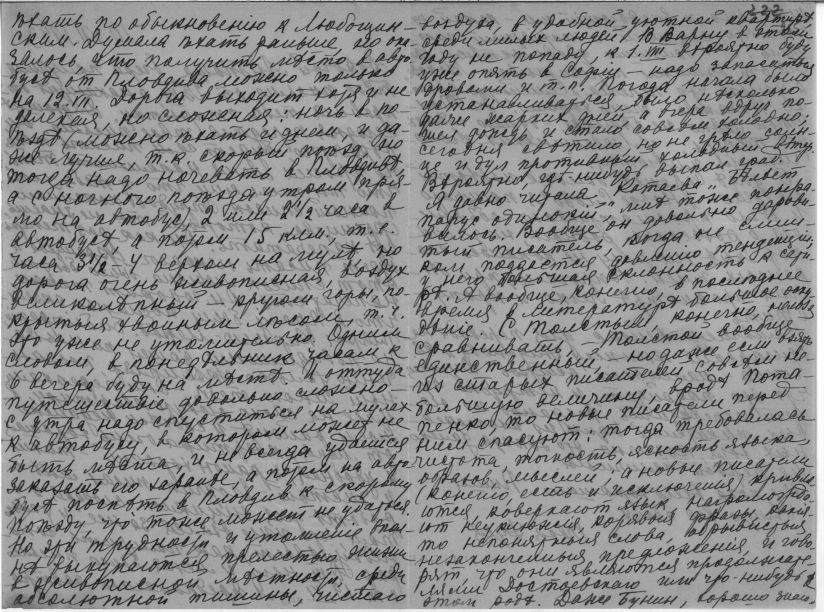 ѣхать по обыкновению к Любощин-
ским. Думала ѣхать раньше, но ока-
залось, что получить мѣсто в авто-
бусѣ от Пловдива можно только
на 12.III. Дорога выходит хотя и не
далекая, но сложная: ночь в по-
ѣздѣ (можно ѣхать и днем, и да-
же лучше, т.к. скорый поѣзд, но
тогда надо ночевать в Пловдивѣ,
а с ночного поѣзда утром пря-
мо на автобус), 2 или 2 1/2 часа в
автобусѣ а потом 15 клм., т.е.
часа 3 1/2 4 верхом на мулѣ, но
дорога очень живописная, воздух
великолѣпный – кругом горы, по-
крытыя хвойным лѣсом, т.ч.
это уже не утомительно. Одним
словом, в понедѣльник часам к
6 вечера буду на мѣстѣ. И оттуда
путешествие довольно сложно –
с утра надо спуститься на мулах
к автобусу, в котором может не
быть мѣста, и не всегда удается
заказать его заранѣе, а потом на авто-
бусѣ поспѣть в Пловдив к скорому
поѣзду, что тоже может не удаться.
Но эти трудности и утомление впол-
нѣ выкупаются прелестью жизни
в живописной мѣстности, среди
абсолютной тишины, чистаго
воздуха, в удобной уютной квартирѣ
среди милых людей. В Варну в этом
году не попаду, к 1.III. вѣроятно буду
уже опять в Софии – надо запасаться
дровами и т.п. Погода начала было
устанавливаться, было нѣсколько
даже жарких дней, а вчера вдруг по-
шел дождь и стало совсѣм холодно;
сегодня свѣтило но не грѣло солн-
це и дул противный холодный вѣтер.
Вѣроятно, гдѣ-нибудь выпал град.
Я давно читала Катаева „Бѣлѣет
парус одинокий“, мнѣ тоже понра-
вилось. Вообще он довольно дарови-
тый писатель, когда не слиш-
ком поддается давлению тенденции,
у него большая склонность к сати-
рѣ. А вообще, конечно, в послѣднее
время в литературѣ большое оску-
дѣние. С Толстым, конечно, нельзя
сравнивать, – Толстой вообще
единственный, – но даже если взять
из старых писателей совсѣм не-
большую величину, вродѣ Пота-
пенко то новые писатели перед
ним спасуют: тогда требовалась
чистота, точность, ясность языка,
образов, мыслей, а новые писатели
(конечно, есть и исключения) кривля-
ются, коверкают язык, нагроможда-
ют неуклюжия, корявыя фразы, какия-
то непонятныя слова, обрывистыя
незаконченныя предложения, и гово-
рят, что они являются продолжате-
лями Достоевскаго или что-нибудь в
этом родѣ. Даже Бунин, хорошо знаю-